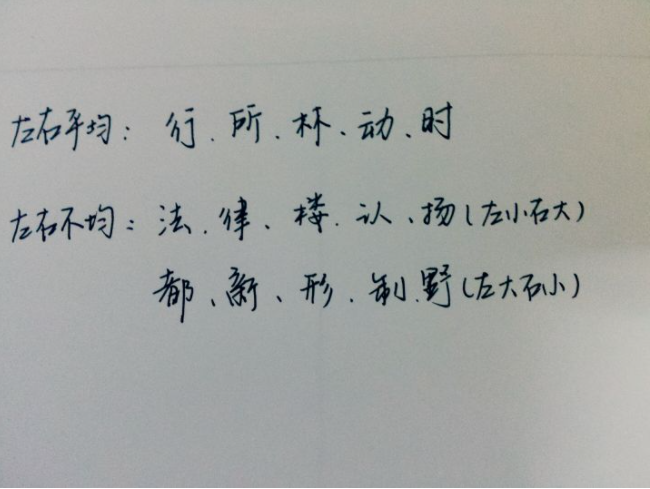 左右平均：行、所、杯、动、时
左右不均：法、律、楼、认、扬(左小右大)
都、新、形、制、野(左大右小)